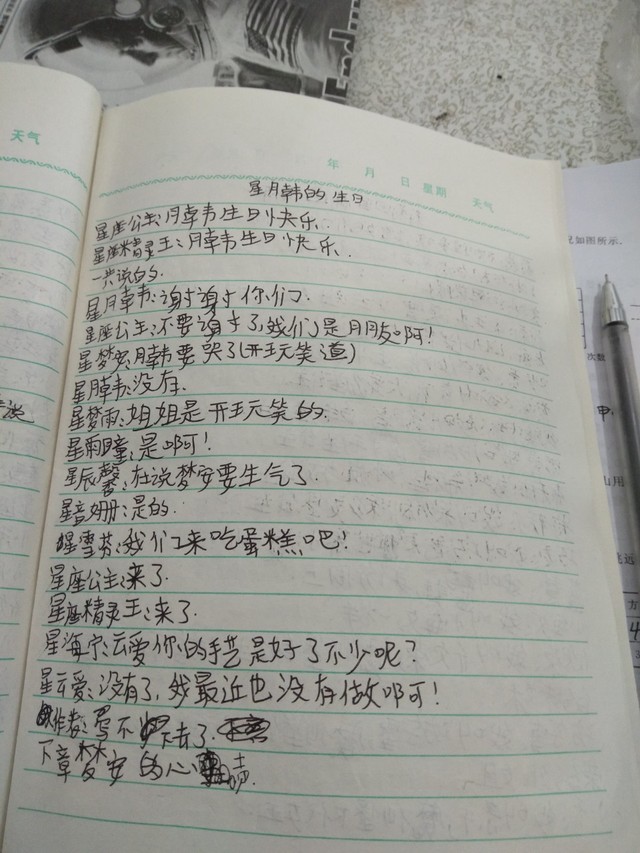 天气
年 月 日 星期 天气
星月韩的生日
星座公主:月韩生日快乐.
星座精灵王:月韩生日快乐.
一共说的.
星月韩:谢谢你们.
星座公主:不要谢了,我们是朋友啊!
星梦安:月韩要哭了(开玩笑道)
星月韩:没存.
星梦雨:姐姐是开玩笑的.
星雨瞳:是啊!
星辰馨:在说梦安要生气了.
星音姗:是的.
星雪芬:我们来吃蛋糕吧!
星座公主:来了.
星座精灵王:来了.
星海宁:云爱你的手艺是好了不少呢?
星云爱:没有了,我最近也没存做啊!
作者:写不下去了.
下章梦安的心
况如图所示.
次数
甲:
山用
方